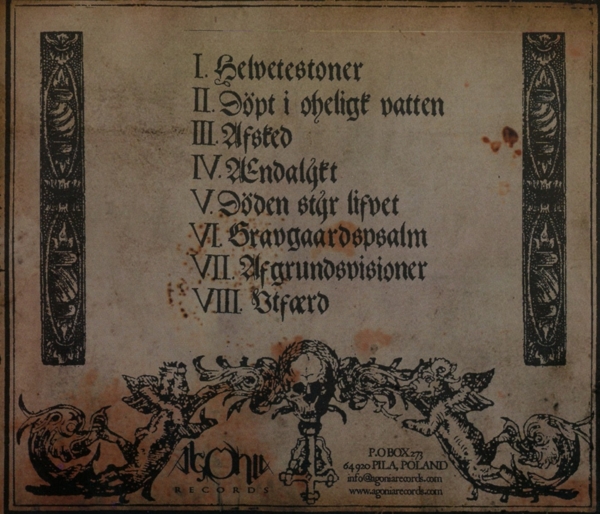 I. Helvetestoner
II. Döpt i oheligt vatten
III. Afsked
IV. Ændalykt
V. Döden styr lifvet
VI. Gravgaardspsalm
VII. Afgrundsvisioner
VIII. Utfærd
Agonia
RECORDS
P.O BOX 273
64-920 PILA, POLAND
info@agoniarecords.com
www.agoniarecords.com